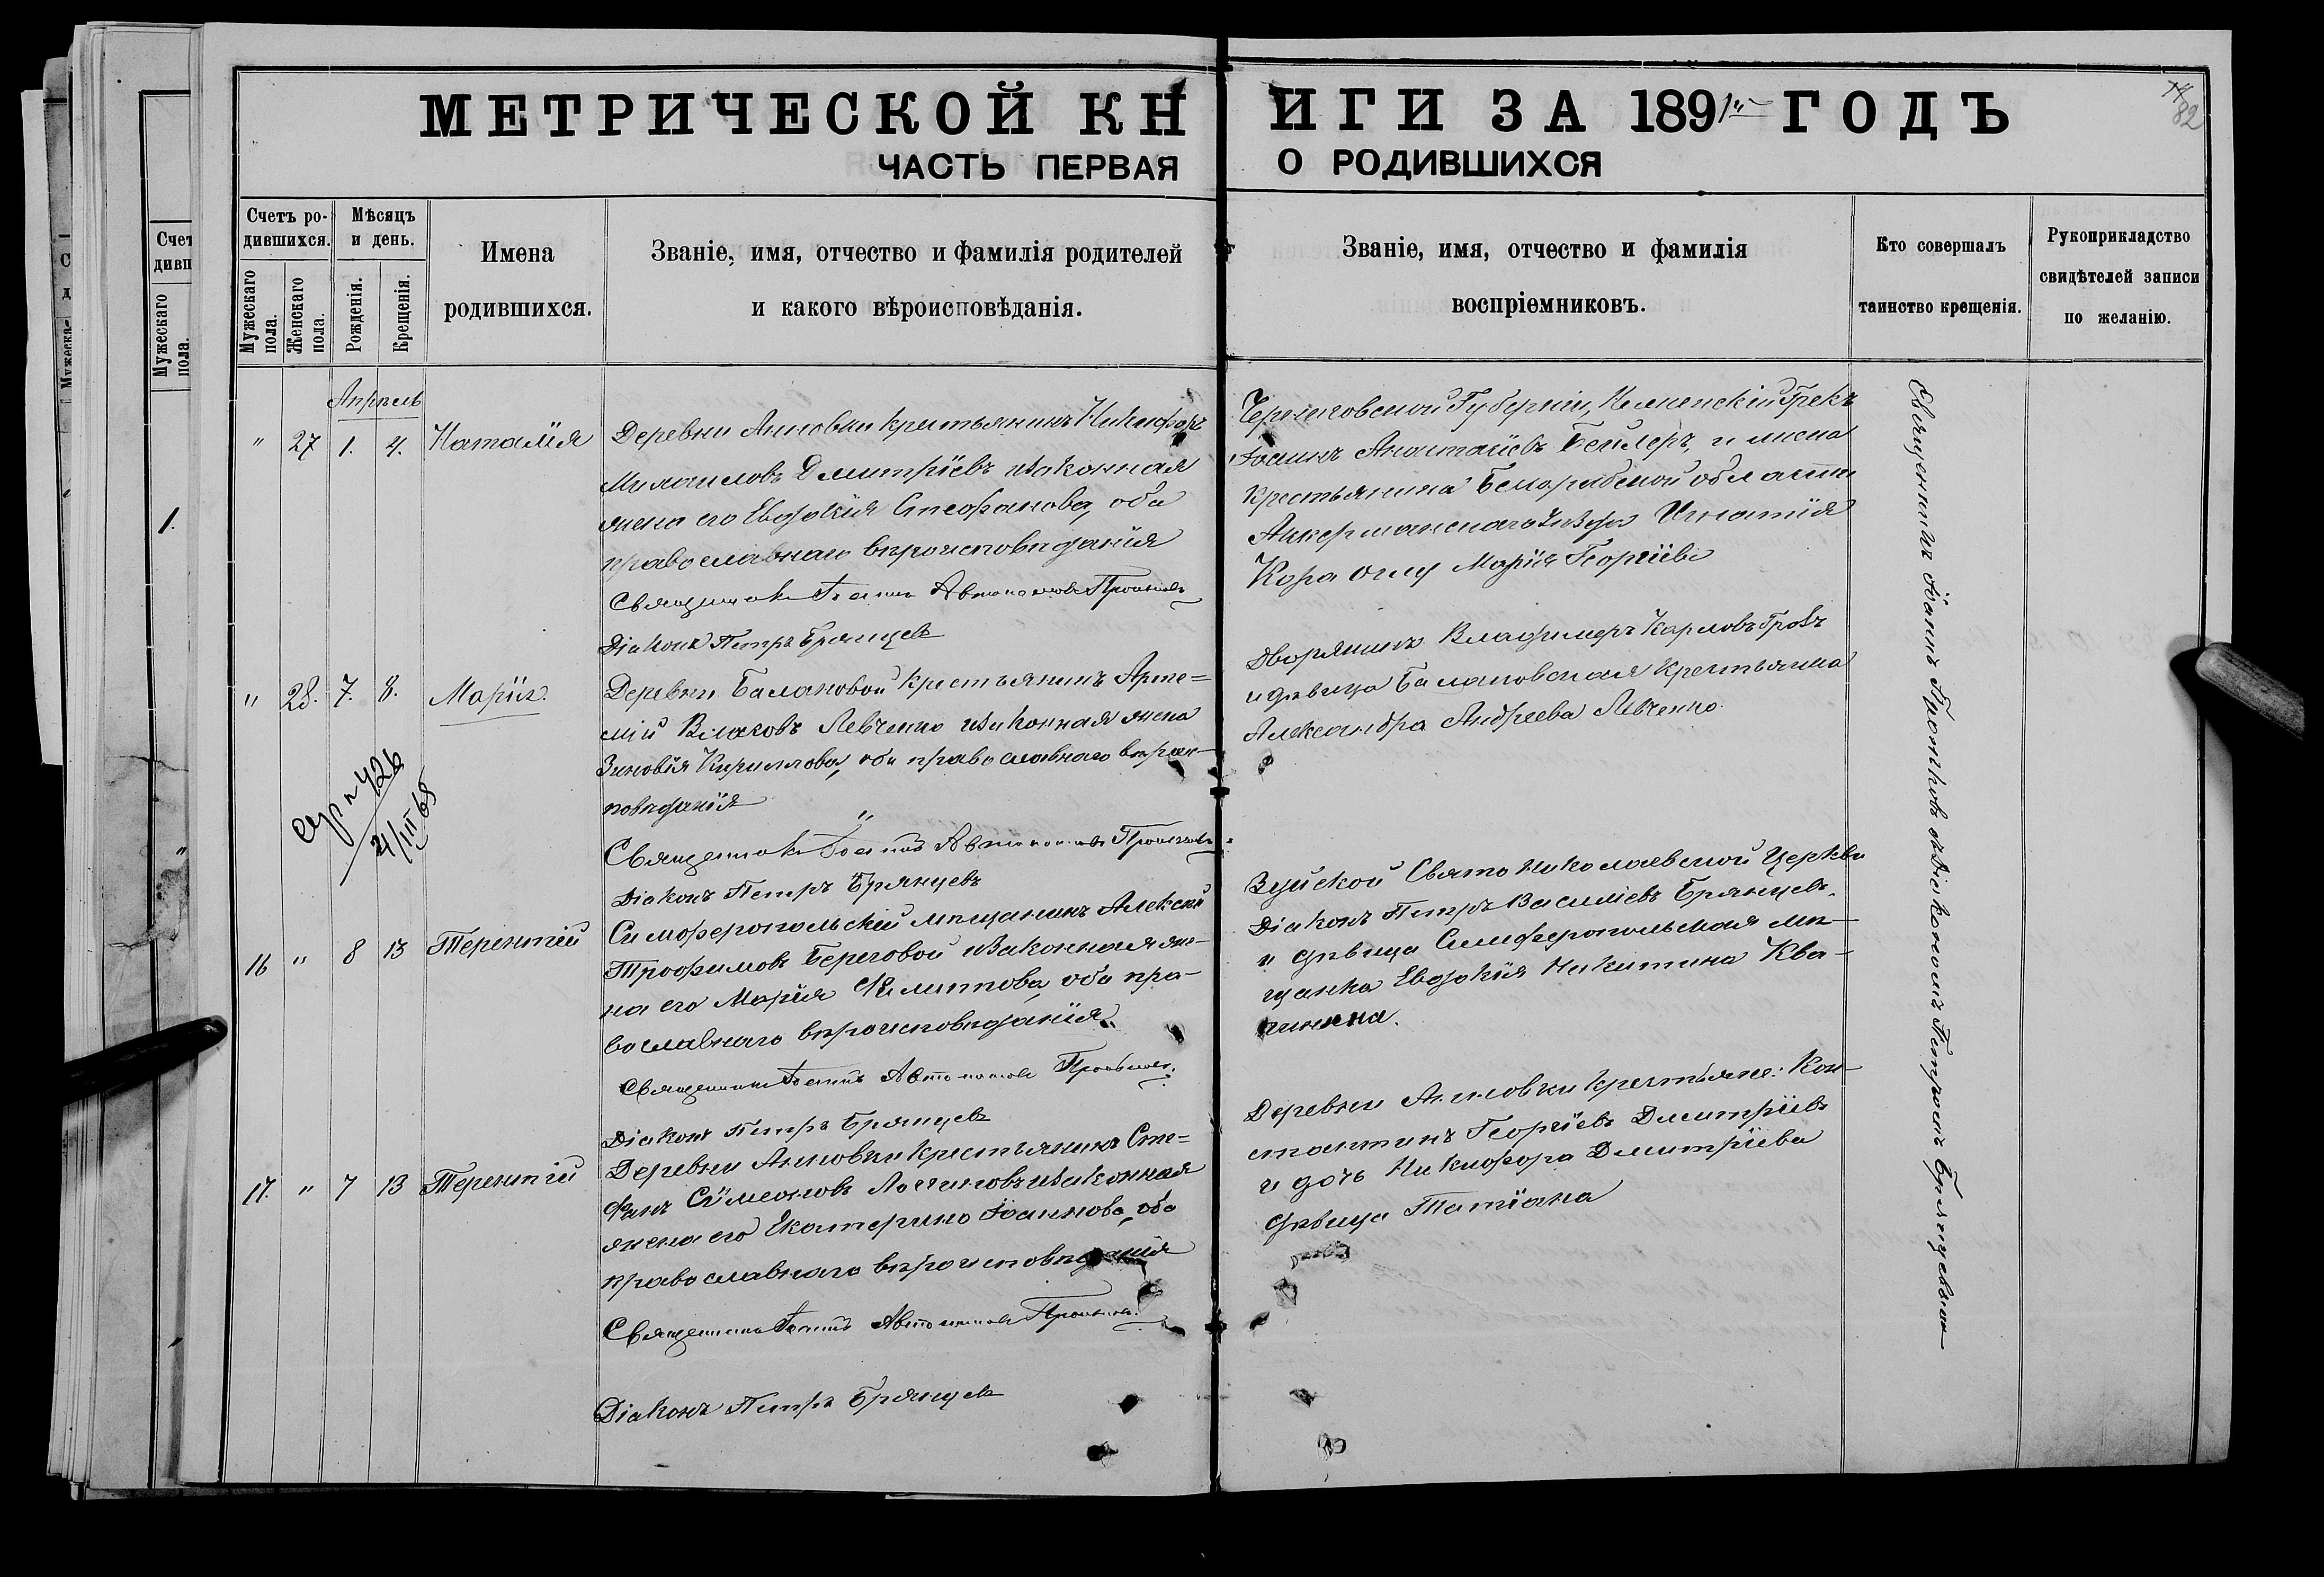 МЕТРИЧЕСКОЙ КНИГИ ЗА 1891й ГОДЪ
82
ЧАСТЬ ПЕРВАЯ О РОДИВШИХСЯ
Счетъ родившихся.
Мужескаго пола.
Женскаго пола.
Мѣсяцъ и день.
Рожденія.
Крещенія.
Имена родившихся.
Званіе, имя, отчество и фамилія родителей
и какого вѣроисповѣданія.
Званіе, имя, отчество и фамилія
воспріемниковъ.
Кто совершалъ
таинство крещенія.
Рукоприкладство
свидѣтелей записи
по желанію.
Апрѣль
" 27 1. 4. Наталія
Деревни Анновки крестьянинъ Никифоръ
Михаиловъ Димитріевъ и законная
жена его Евдокія Стефанова, оба
православнаго вѣроисповѣданія
Священникъ Іоаннъ Автономовъ
Діаконъ Петръ Брянцевъ
Черниговской Губерніи, Грекъ
Іоаннъ Анастасіевъ и жена
крестьянина области
Аккерманскаго уѣзда Игнатія
Кара оглу Марія Георгіева
" 28. 7. 8. Марія.
Деревни Балановой крестьянинъ Арте=
мій Власовъ Левченко и законная жена
Зиновія Кириллова, оба православнаго вѣроис-
повѣданія
Священникъ Іоаннъ Автономовъ
Діаконъ Петръ Брянцевъ
Дворянинъ Владимеръ Карловъ
и дѣвица Балановская крестьянка
Александра Андреева Левченко.
№ 426
21/III 68
16 " 8 13 Терентій
Симферопольскій мѣщанинъ Алексѣй
Трофимовъ Береговой и законная же-
на его Марія Филиппова, оба пра-
вославнаго вѣроисповѣданія.
Священникъ Іоаннъ Автономовъ
Діаконъ Петръ Брянцевъ
Зуйской Свято Николаевской Церкви
Діаконъ Петръ Василіевъ Брянцевъ,
и дѣвица Симферопольская мѣ-
щанка Евдокія Никитина Ква-
шнина.
17. " 7 13 Терентій
Деревни Анновки крестьянинъ Сте=
фанъ Сѵмеоновъ и законная
жена его Екатерина Іоаннова, оба
православнаго вѣроисповѣданія
Священникъ Іоаннъ Автономовъ
Діаконъ Петръ Брянцевъ
Деревни Анновки крестьяне: Кон-
стантинъ Георгіевъ Димитріевъ
и дочь Никифора Димитріева
дѣвица Татіана
Священникъ Іоаннъ съ Діакономъ Петромъ Брянцевымъ
Счет
дивш
Мужескаго
пола.
1.